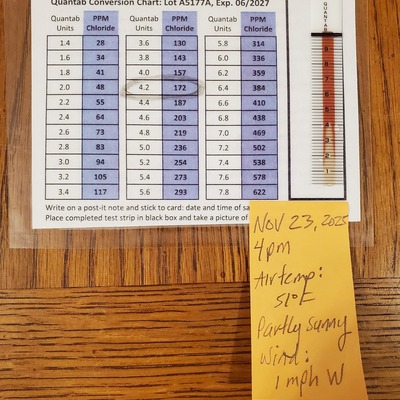 Quantab Conversion Chart: Lot A5177A, Exp. 06/2027
Quantab Units PPM Chloride Quantab Units PPM Chloride Quantab Units PPM Chloride
1.4 28 3.6 130 5.8 314
1.6 34 3.8 143 6.0 336
1.8 41 4.0 157 6.2 359
2.0 48 4.2 172 6.4 384
2.2 55 4.4 187 6.6 410
2.4 64 4.6 203 6.8 438
2.6 73 4.8 219 7.0 469
2.8 83 5.0 236 7.2 502
3.0 94 5.2 254 7.4 538
3.2 105 5.4 273 7.6 578
3.4 117 5.6 293 7.8 622
Write on a post-it note and stick to card: date and time of sa
Place completed test strip in black box and take a picture of
QUANTAB
9
8
7
6
5
4
3
2
1
Nov 23, 2025
4pm
Air temp:
51°F
Partly sunny
Wind:
1 mph W